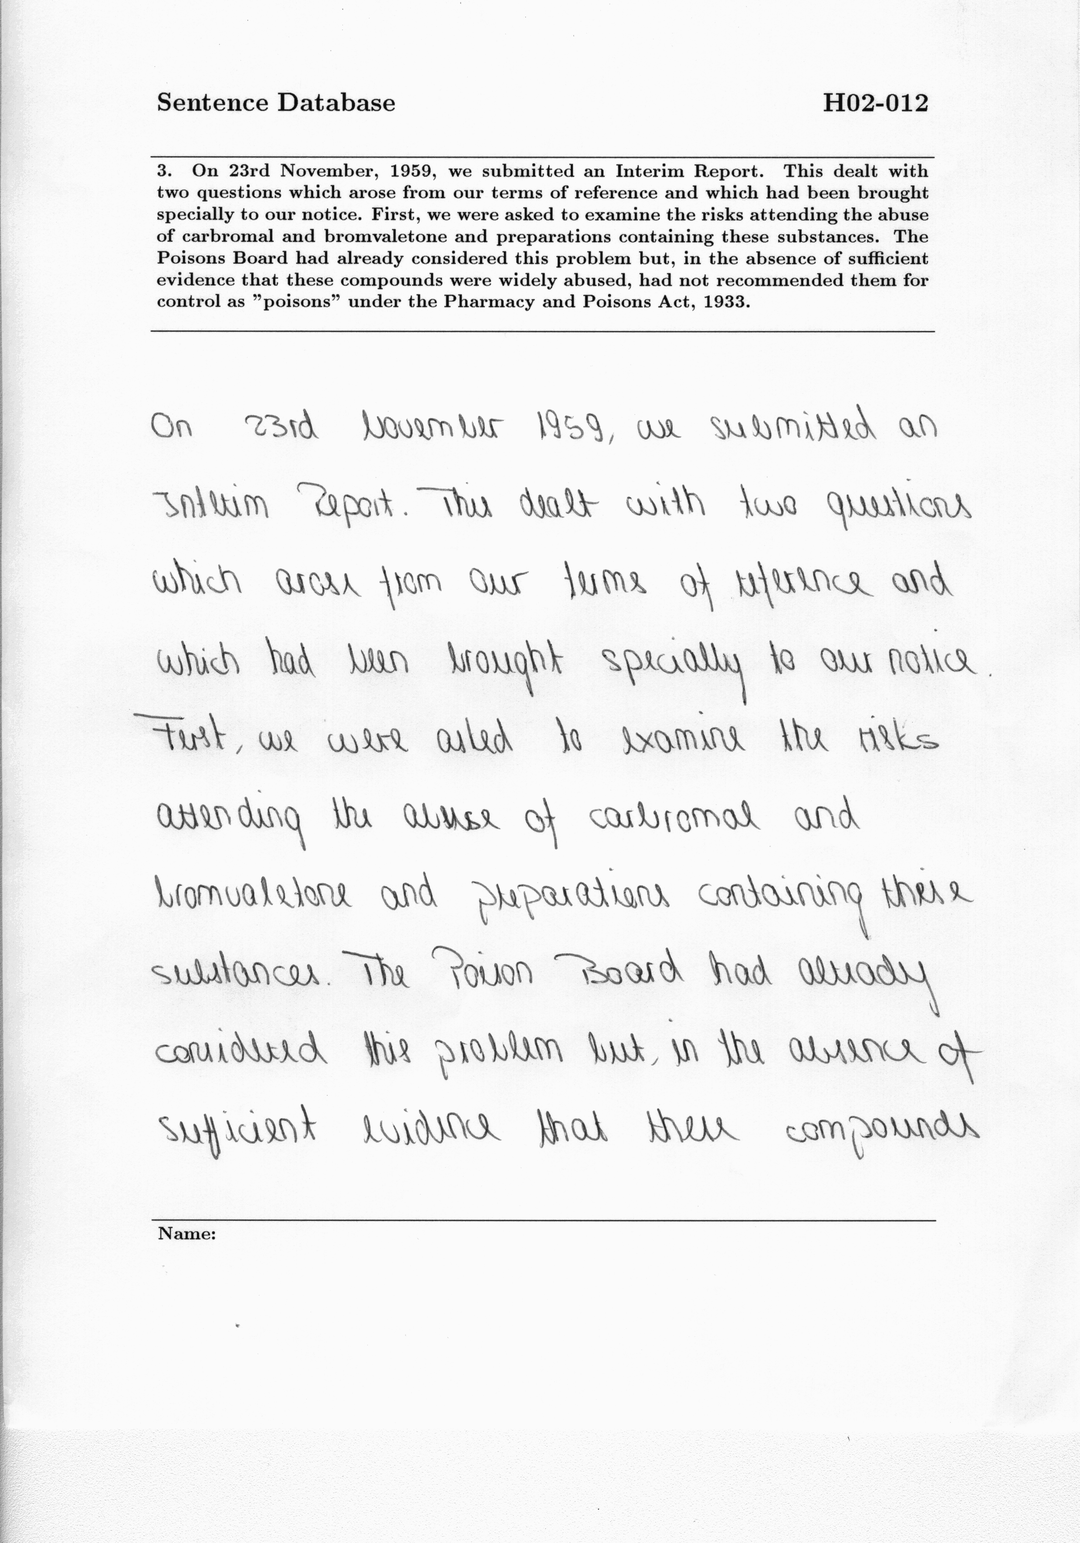 Sentence Database H02-012
3. On 23rd November, 1959, we submitted an Interim Report. This dealt with
two questions which arose from our terms of reference and which had been brought
specially to our notice. First, we were asked to examine the risks attending the abuse
of carbromal and bromvaletone and preparations containing these substances. The
Poisons Board had already considered this problem but, in the absence of sufficient
evidence that these compounds were widely abused, had not recommended them for
control as "poisons" under the Pharmacy and Poisons Act, 1933.
On 23rd November 1959, we submitted an
Interim Report. This dealt with two questions
which arose from our terms of reference and
which had been brought specially to our notice.
First, we were asked to examine the risks
attending the abuse of carbromal and
bromvaletone and preparations containing these
substances. The Poison Board had already
considered this problem but, in the absence of
sufficient evidence that these compounds
Name: